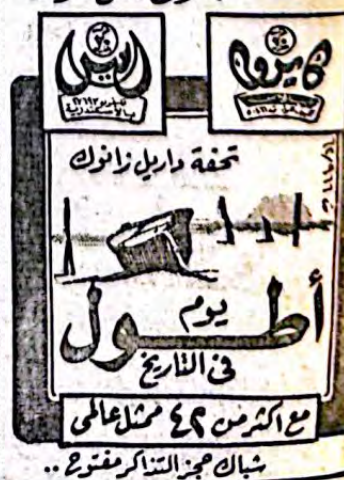 كايرو
ريالتو
بالاسكندرية
تحفة داريل زانوك
أطول
يوم
فى التاريخ
مع اكثر من ٤٢ ممثل عالمى
شباك حجز التذاكر مفتوح ..